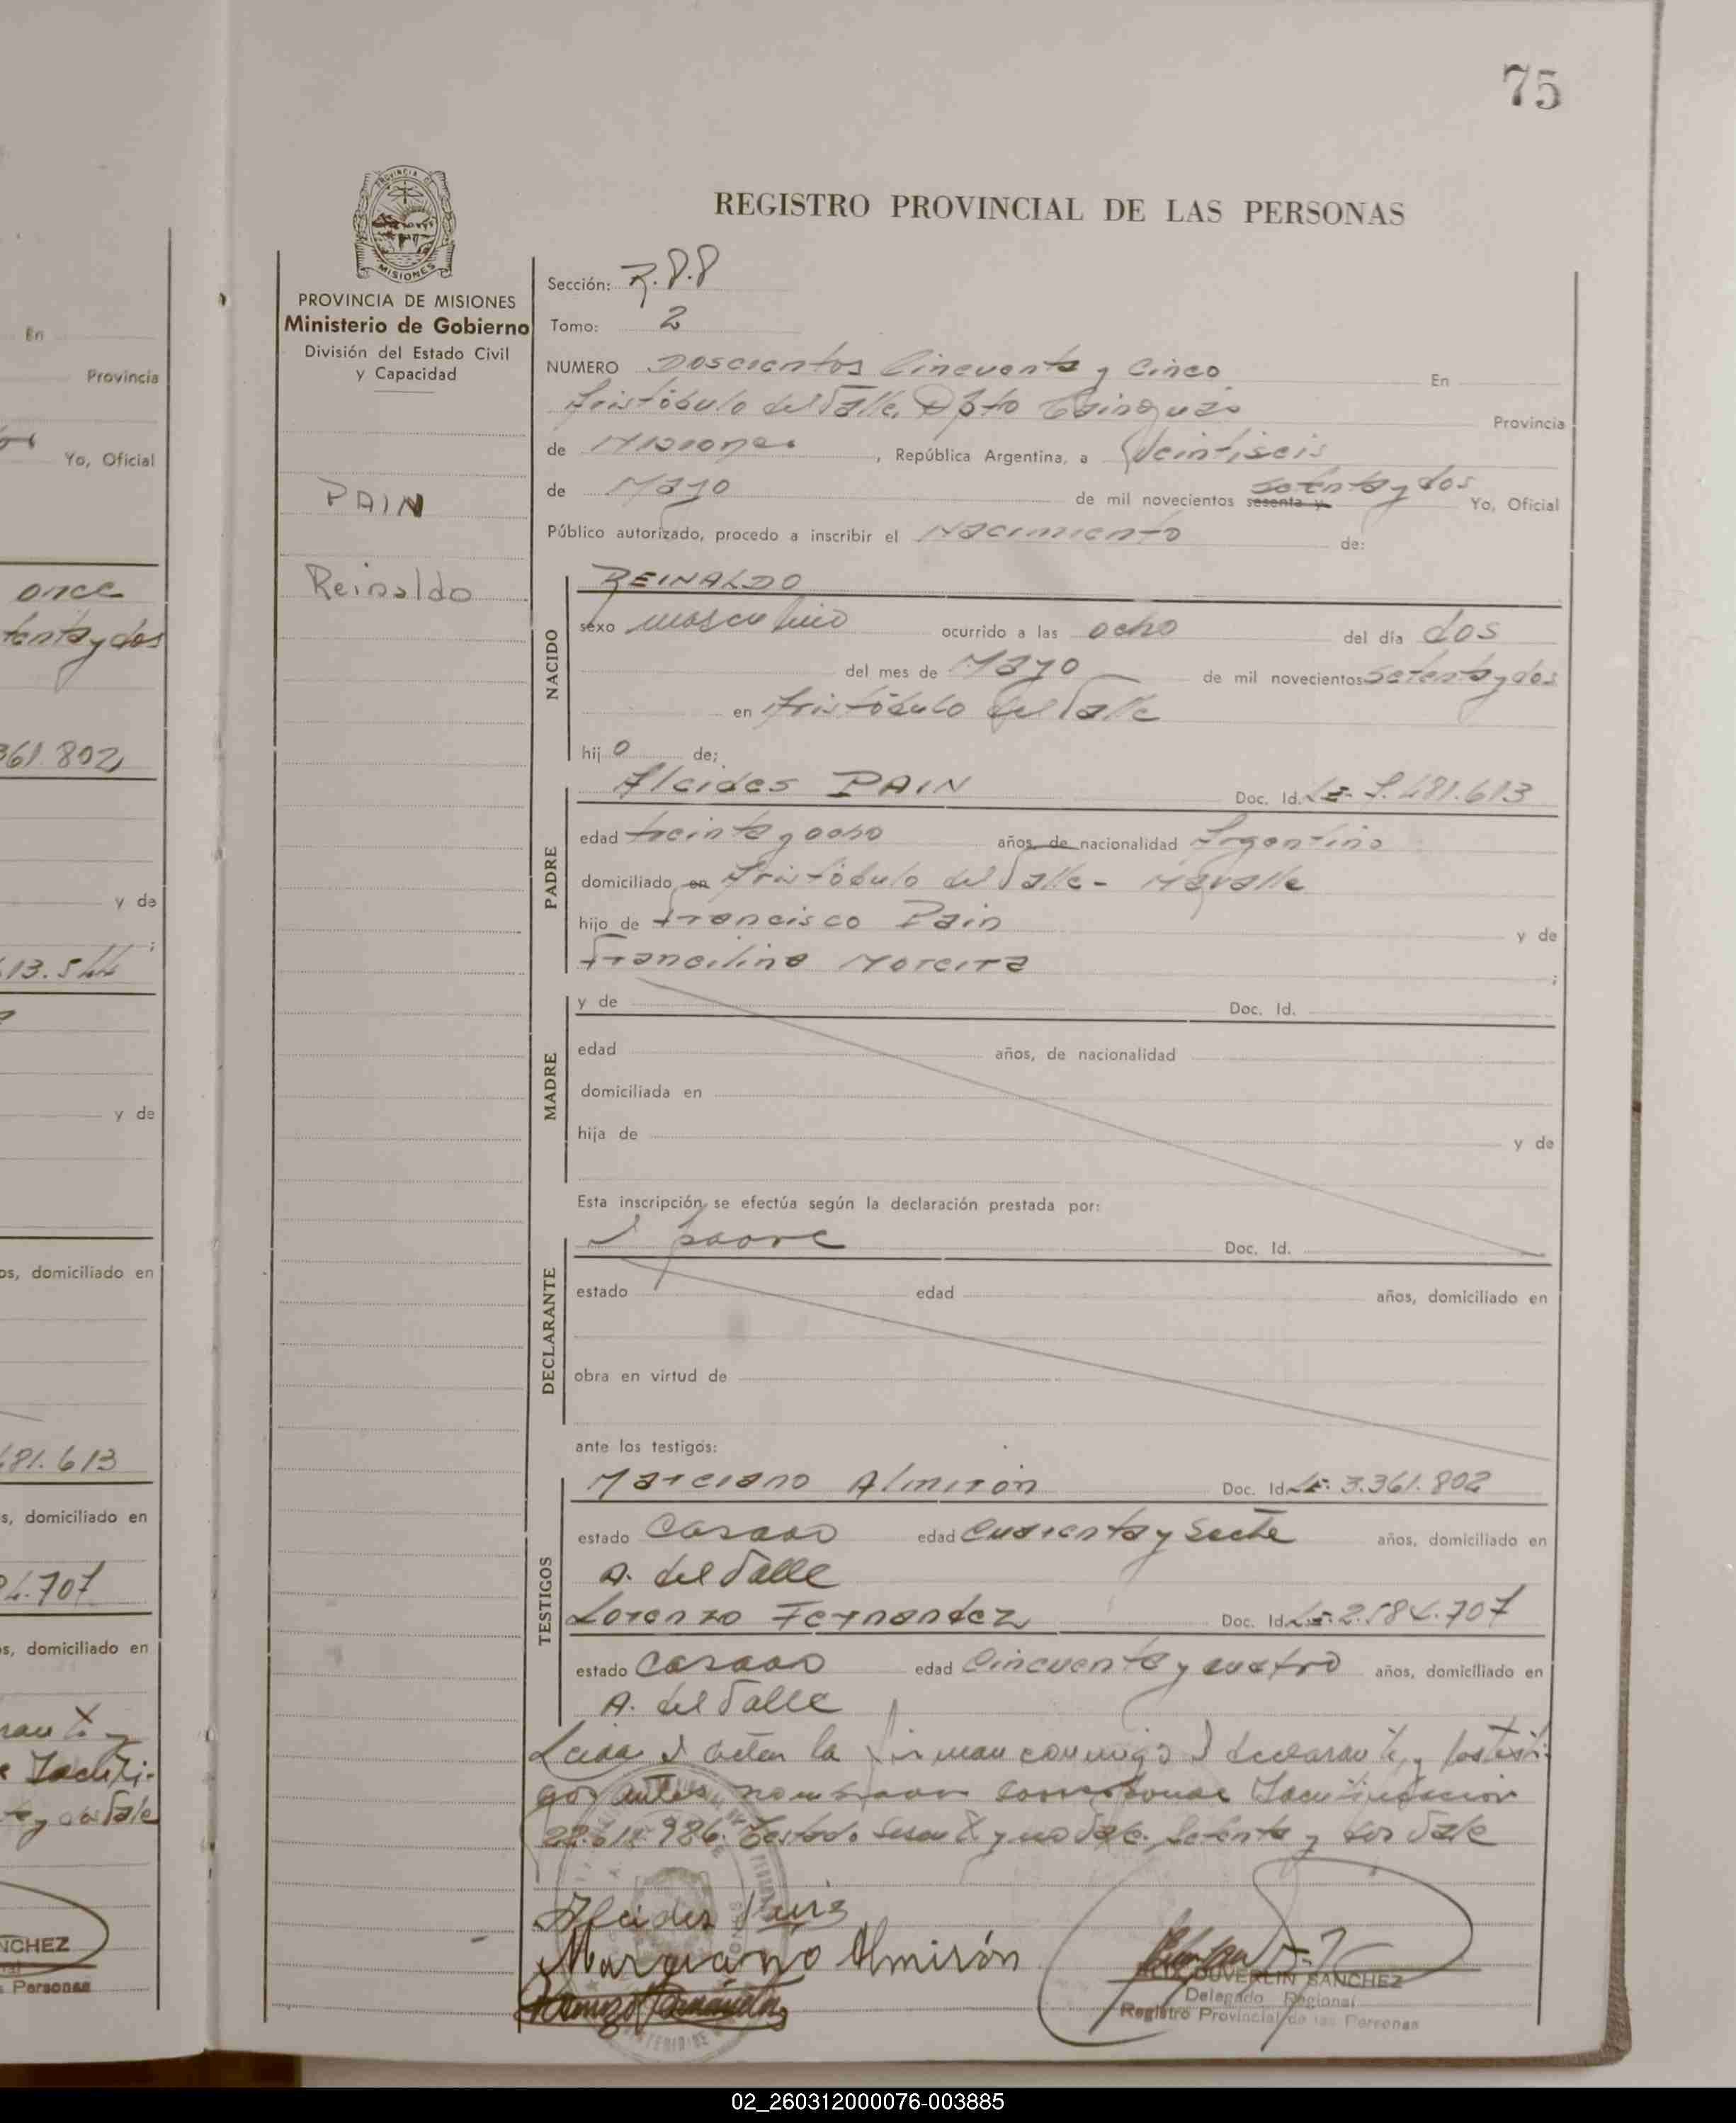 75
REGISTRO PROVINCIAL DE LAS PERSONAS
PROVINCIA DE
MISIONES
PROVINCIA DE MISIONES
Ministerio de Gobierno
División del Estado Civil
y Capacidad
PAIN
Reinaldo
Sección: R.P.P
Tomo: 2
NUMERO Doscientos Cincuenta y Cinco En
Aristóbulo del Valle, Dpto Cainguás Provincia
de Misiones, República Argentina, a Veintiseis
de Mayo de mil novecientos sesenta y setenta y dos Yo, Oficial
Público autorizado, procedo a inscribir el Nacimiento de:
NACIDO
REINALDO
sexo masculino ocurrido a las ocho del día dos
del mes de Mayo de mil novecientos setenta y dos
en Aristóbulo del Valle
hijo de;
PADRE
Alcides PAIN Doc. Id. LE. 7.481.613
edad treinta y ocho años, de nacionalidad Argentino
domiciliado en Aristóbulo del Valle -
hijo de Francisco Pain y de
Francilina Moreira ;
MADRE
y de Doc. Id.
edad años, de nacionalidad
domiciliada en
hija de y de
Esta inscripción, se efectúa según la declaración prestada por:
DECLARANTE
el padre Doc. Id.
estado edad años, domiciliado en
obra en virtud de
ante los testigos:
TESTIGOS
Marciano Almirón Doc. Id. LE. 3.361.802
estado Casado edad Cuarenta y Siete años, domiciliado en
A. del Valle
Lorenzo Fernandez Doc. Id. LE. 2.584.707
estado Casado edad Cincuenta y cuatro años, domiciliado en
A. del Valle
Leida el acta la firman conmigo el declarante y los testi-
gos antes nombrados
Testado sesenta y no Vale. Setenta y dos Vale
Alcides
Marciano Almirón
DUVERLIN SANCHEZ
Delegado Regional
Registro Provincial de las Personas
En
Provincia
Yo, Oficial
once
tenta y dos
361.802
y de
;
13.544
y de
os, domiciliado en
481.613
s, domiciliado en
84.707
s, domiciliado en
NCHEZ
Personas
02_260312000076-003885